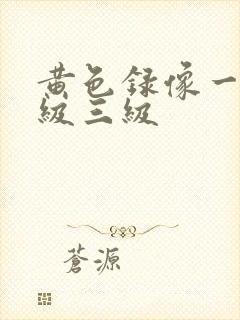 黄色録像一
級三級
蒼源